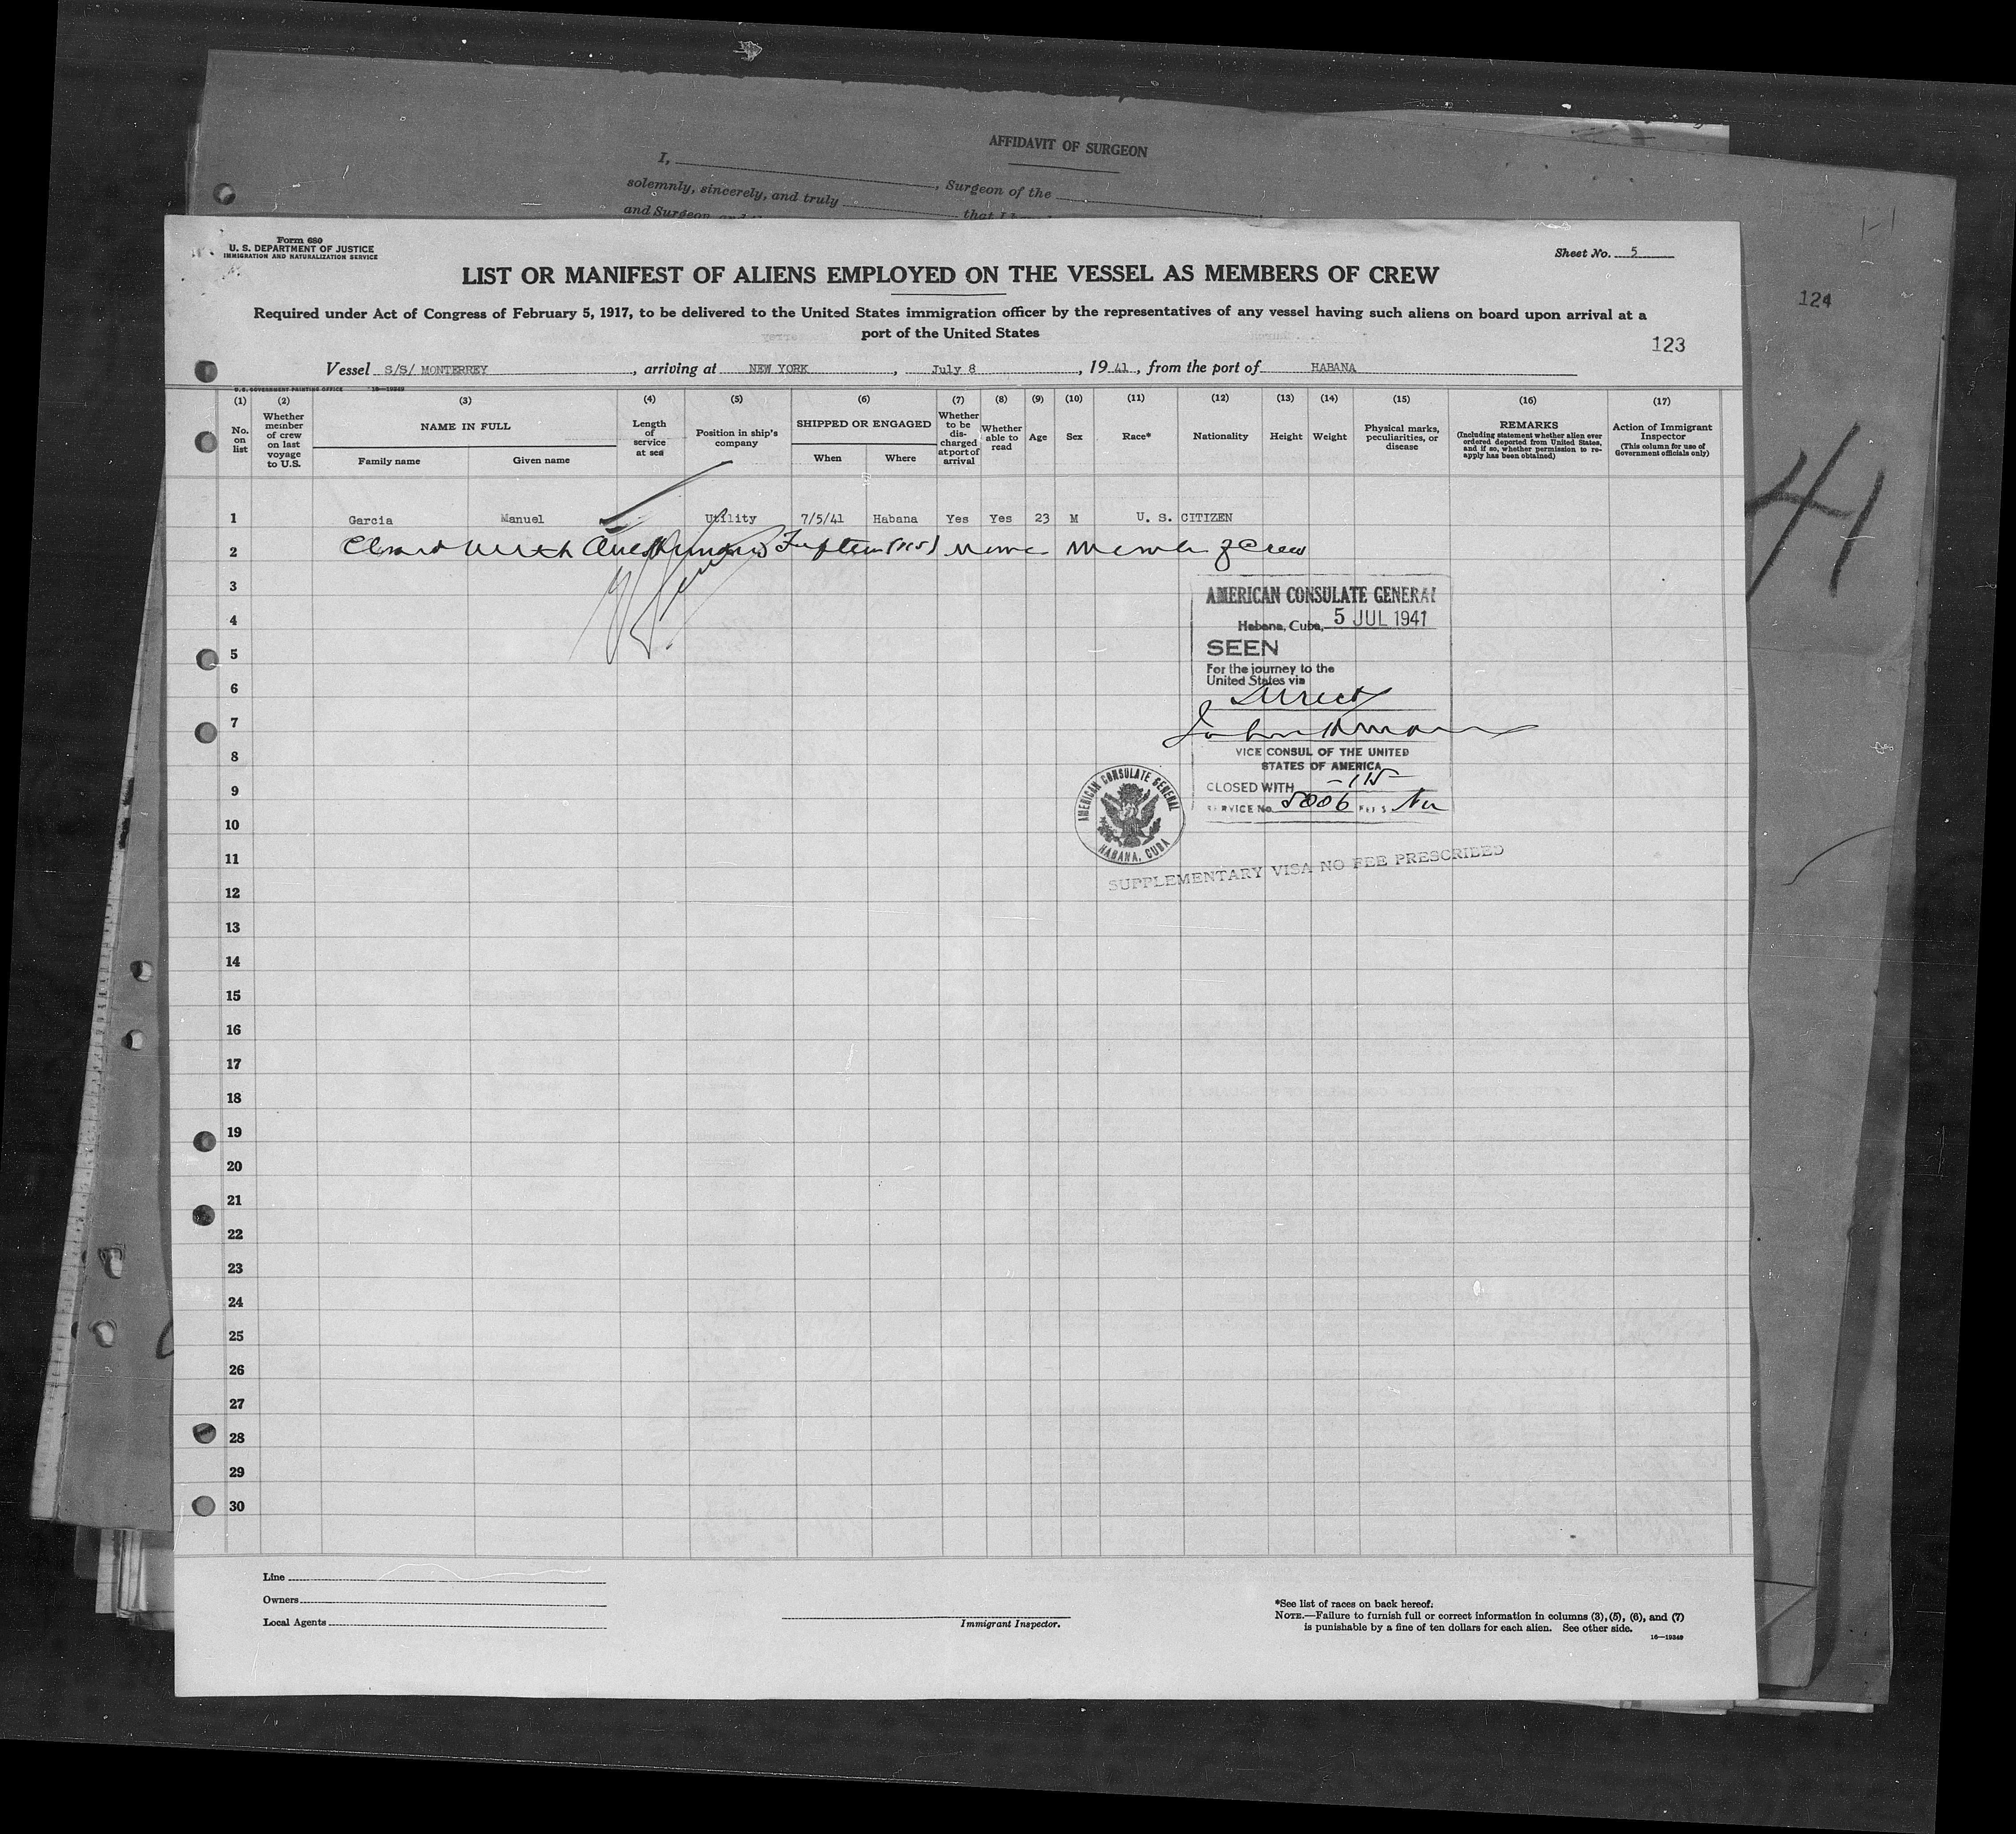 AFFIDAVIT OF SURGEON
I, , Surgeon of the
solemnly, sincerely, and truly that I
and Surgeon
1-1
124
41
Form 680
U. S. DEPARTMENT OF JUSTICE
IMMIGRATION AND NATURALIZATION SERVICE
Sheet No. 5
LIST OR MANIFEST OF ALIENS EMPLOYED ON THE VESSEL AS MEMBERS OF CREW
Required under Act of Congress of February 5, 1917, to be delivered to the United States immigration officer by the representatives of any vessel having such aliens on board upon arrival at a
port of the United States
123
Vessel S/S/ MONTERREY , arriving at NEW YORK , July 8 , 19 41 , from the port of HABANA
U.S. GOVERNMENT PRINTING OFFICE 16—19349
(1) (2) (3) (4) (5) (6) (7) (8) (9) (10) (11) (12) (13) (14) (15) (16) (17)
No. on list
Whether member of crew on last voyage to U.S.
NAME IN FULL
Family name Given name
Length of service at sea
Position in ship's company
SHIPPED OR ENGAGED
When Where
Whether to be dis-charged at port of arrival
Whether able to read
Age
Sex
Race*
Nationality
Height
Weight
Physical marks, peculiarities, or disease
REMARKS
(Including statement whether alien ever ordered deported from United States, and if so, whether permission to re-apply has been obtained)
Action of Immigrant Inspector
(This column for use of Government officials only)
1 Garcia Manuel Utility 7/5/41 Habana Yes Yes 23 M U. S. CITIZEN
2 Closed with One Hundred Fifteen (115) Member of Crew
3
4
5
6
7
8
9
10
11
12
13
14
15
16
17
18
19
20
21
22
23
24
25
26
27
28
29
30
AMERICAN CONSULATE GENERAL
Habana, Cuba, 5 JUL 1941
SEEN
For the journey to the
United States via
Direct
VICE CONSUL OF THE UNITED
STATES OF AMERICA
CLOSED WITH -115-
SERVICE No. 5006 FEES
AMERICAN CONSULATE GENERAL
HABANA, CUBA
SUPPLEMENTARY VISA NO FEE PRESCRIBED
Line
Owners
Local Agents
Immigrant Inspector.
*See list of races on back hereof.
NOTE.—Failure to furnish full or correct information in columns (3), (5), (6), and (7)
is punishable by a fine of ten dollars for each alien. See other side.
16—19349